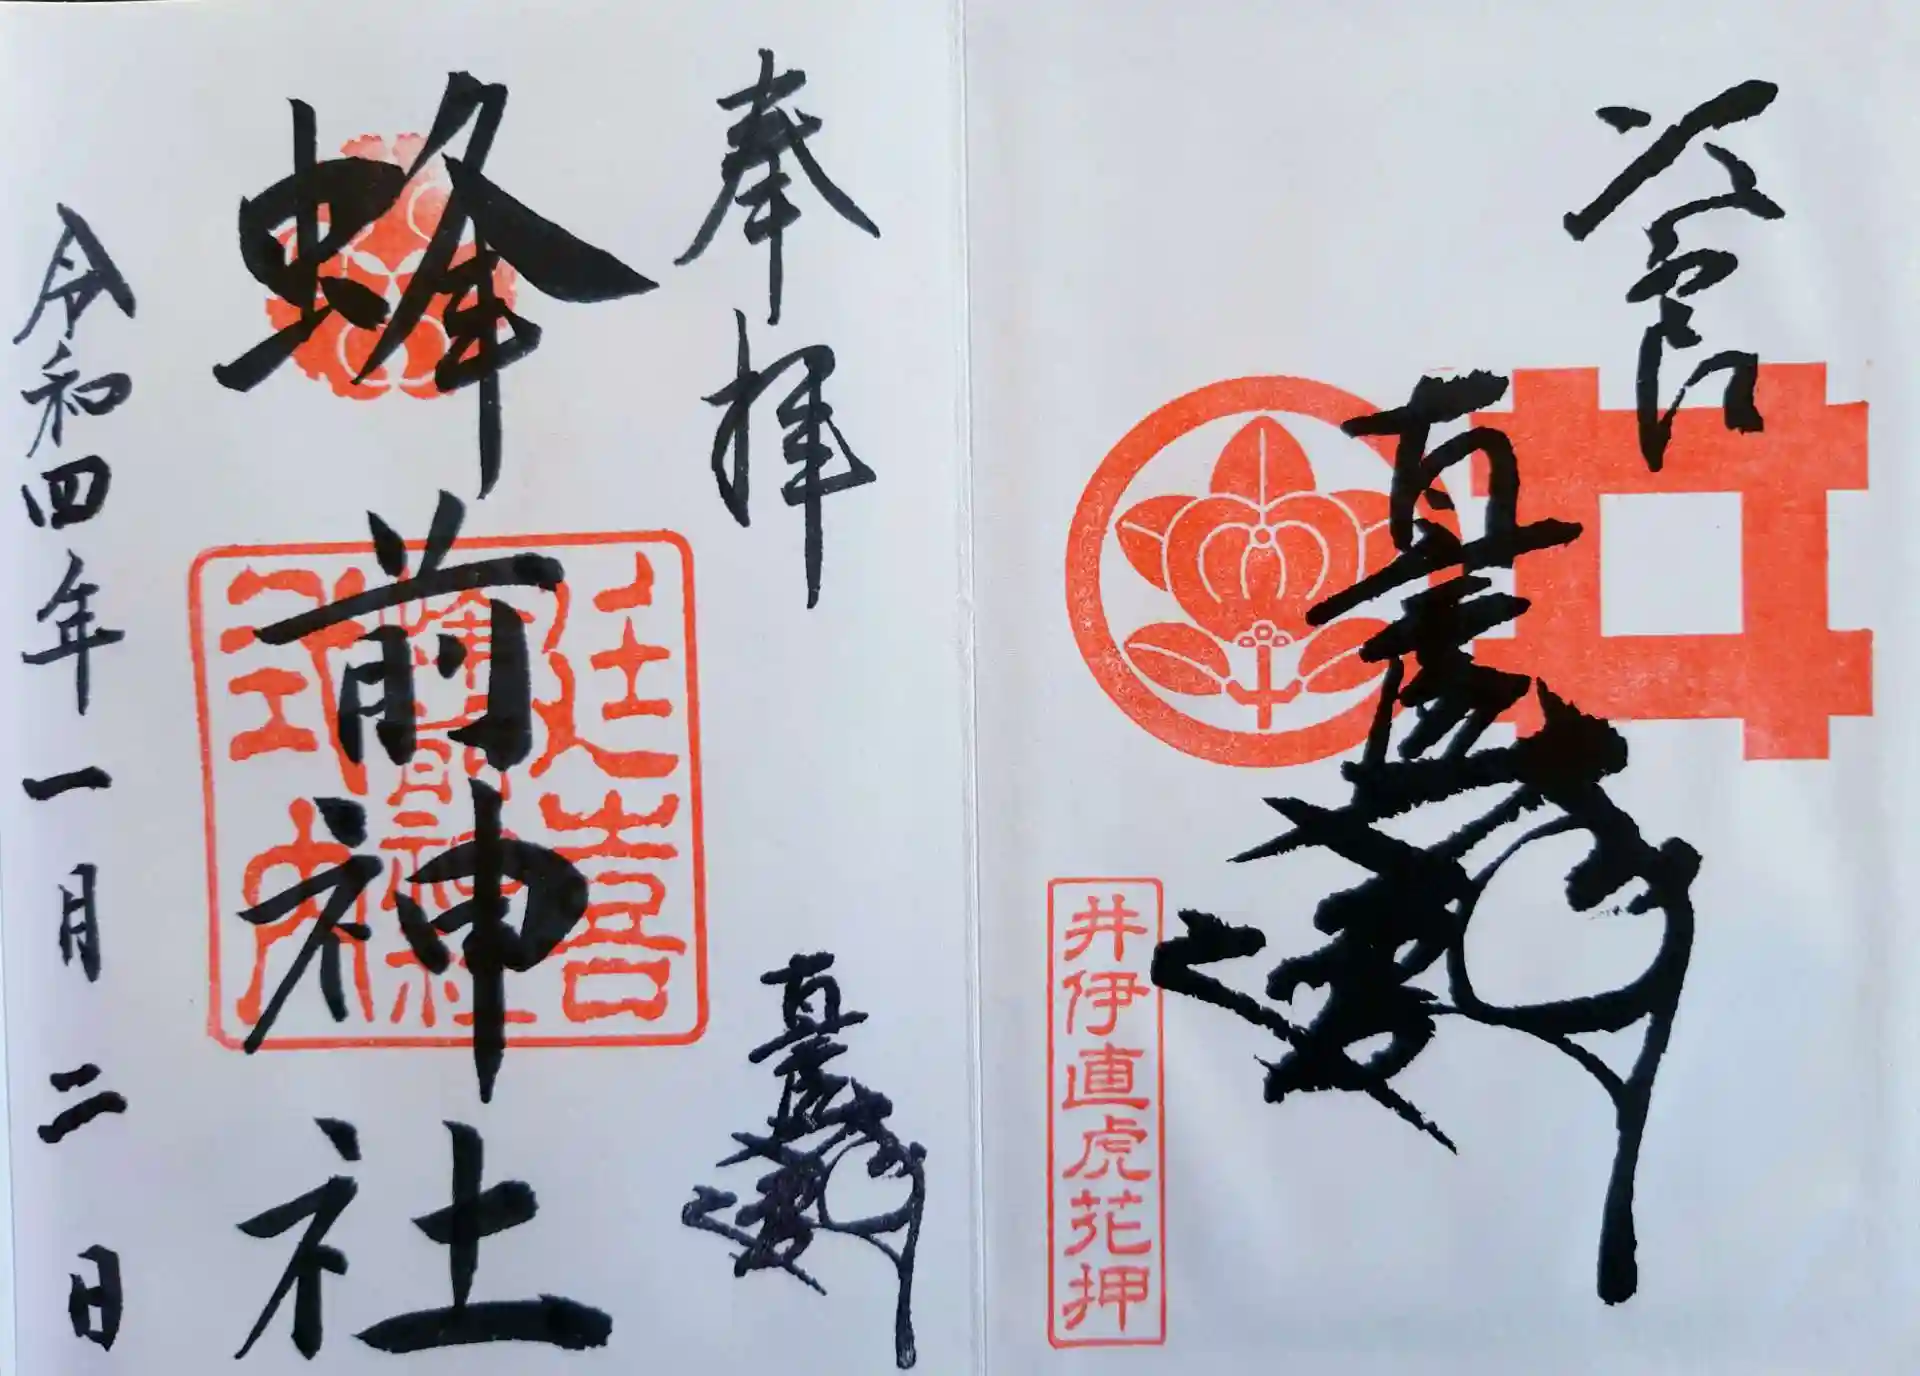 次郎
直虎
井伊直虎花押
奉拝
直虎
蜂前神社
延喜
蜂前神社
式内
令和四年一月二日